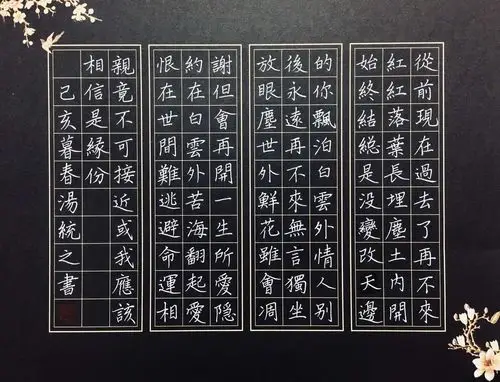 從前現在過去了再不來
紅紅落葉長埋塵土內開
始終結總是沒變改天邊
的你飄泊白雲外情人別
後永遠再不來無言獨坐
放眼塵世外鮮花雖會凋
謝但會再開一生所愛隱
約在白雲外苦海翻起愛
恨在世間難逃避命運相
親竟不可接近或我應該
相信是緣份
己亥暮春湯統之書